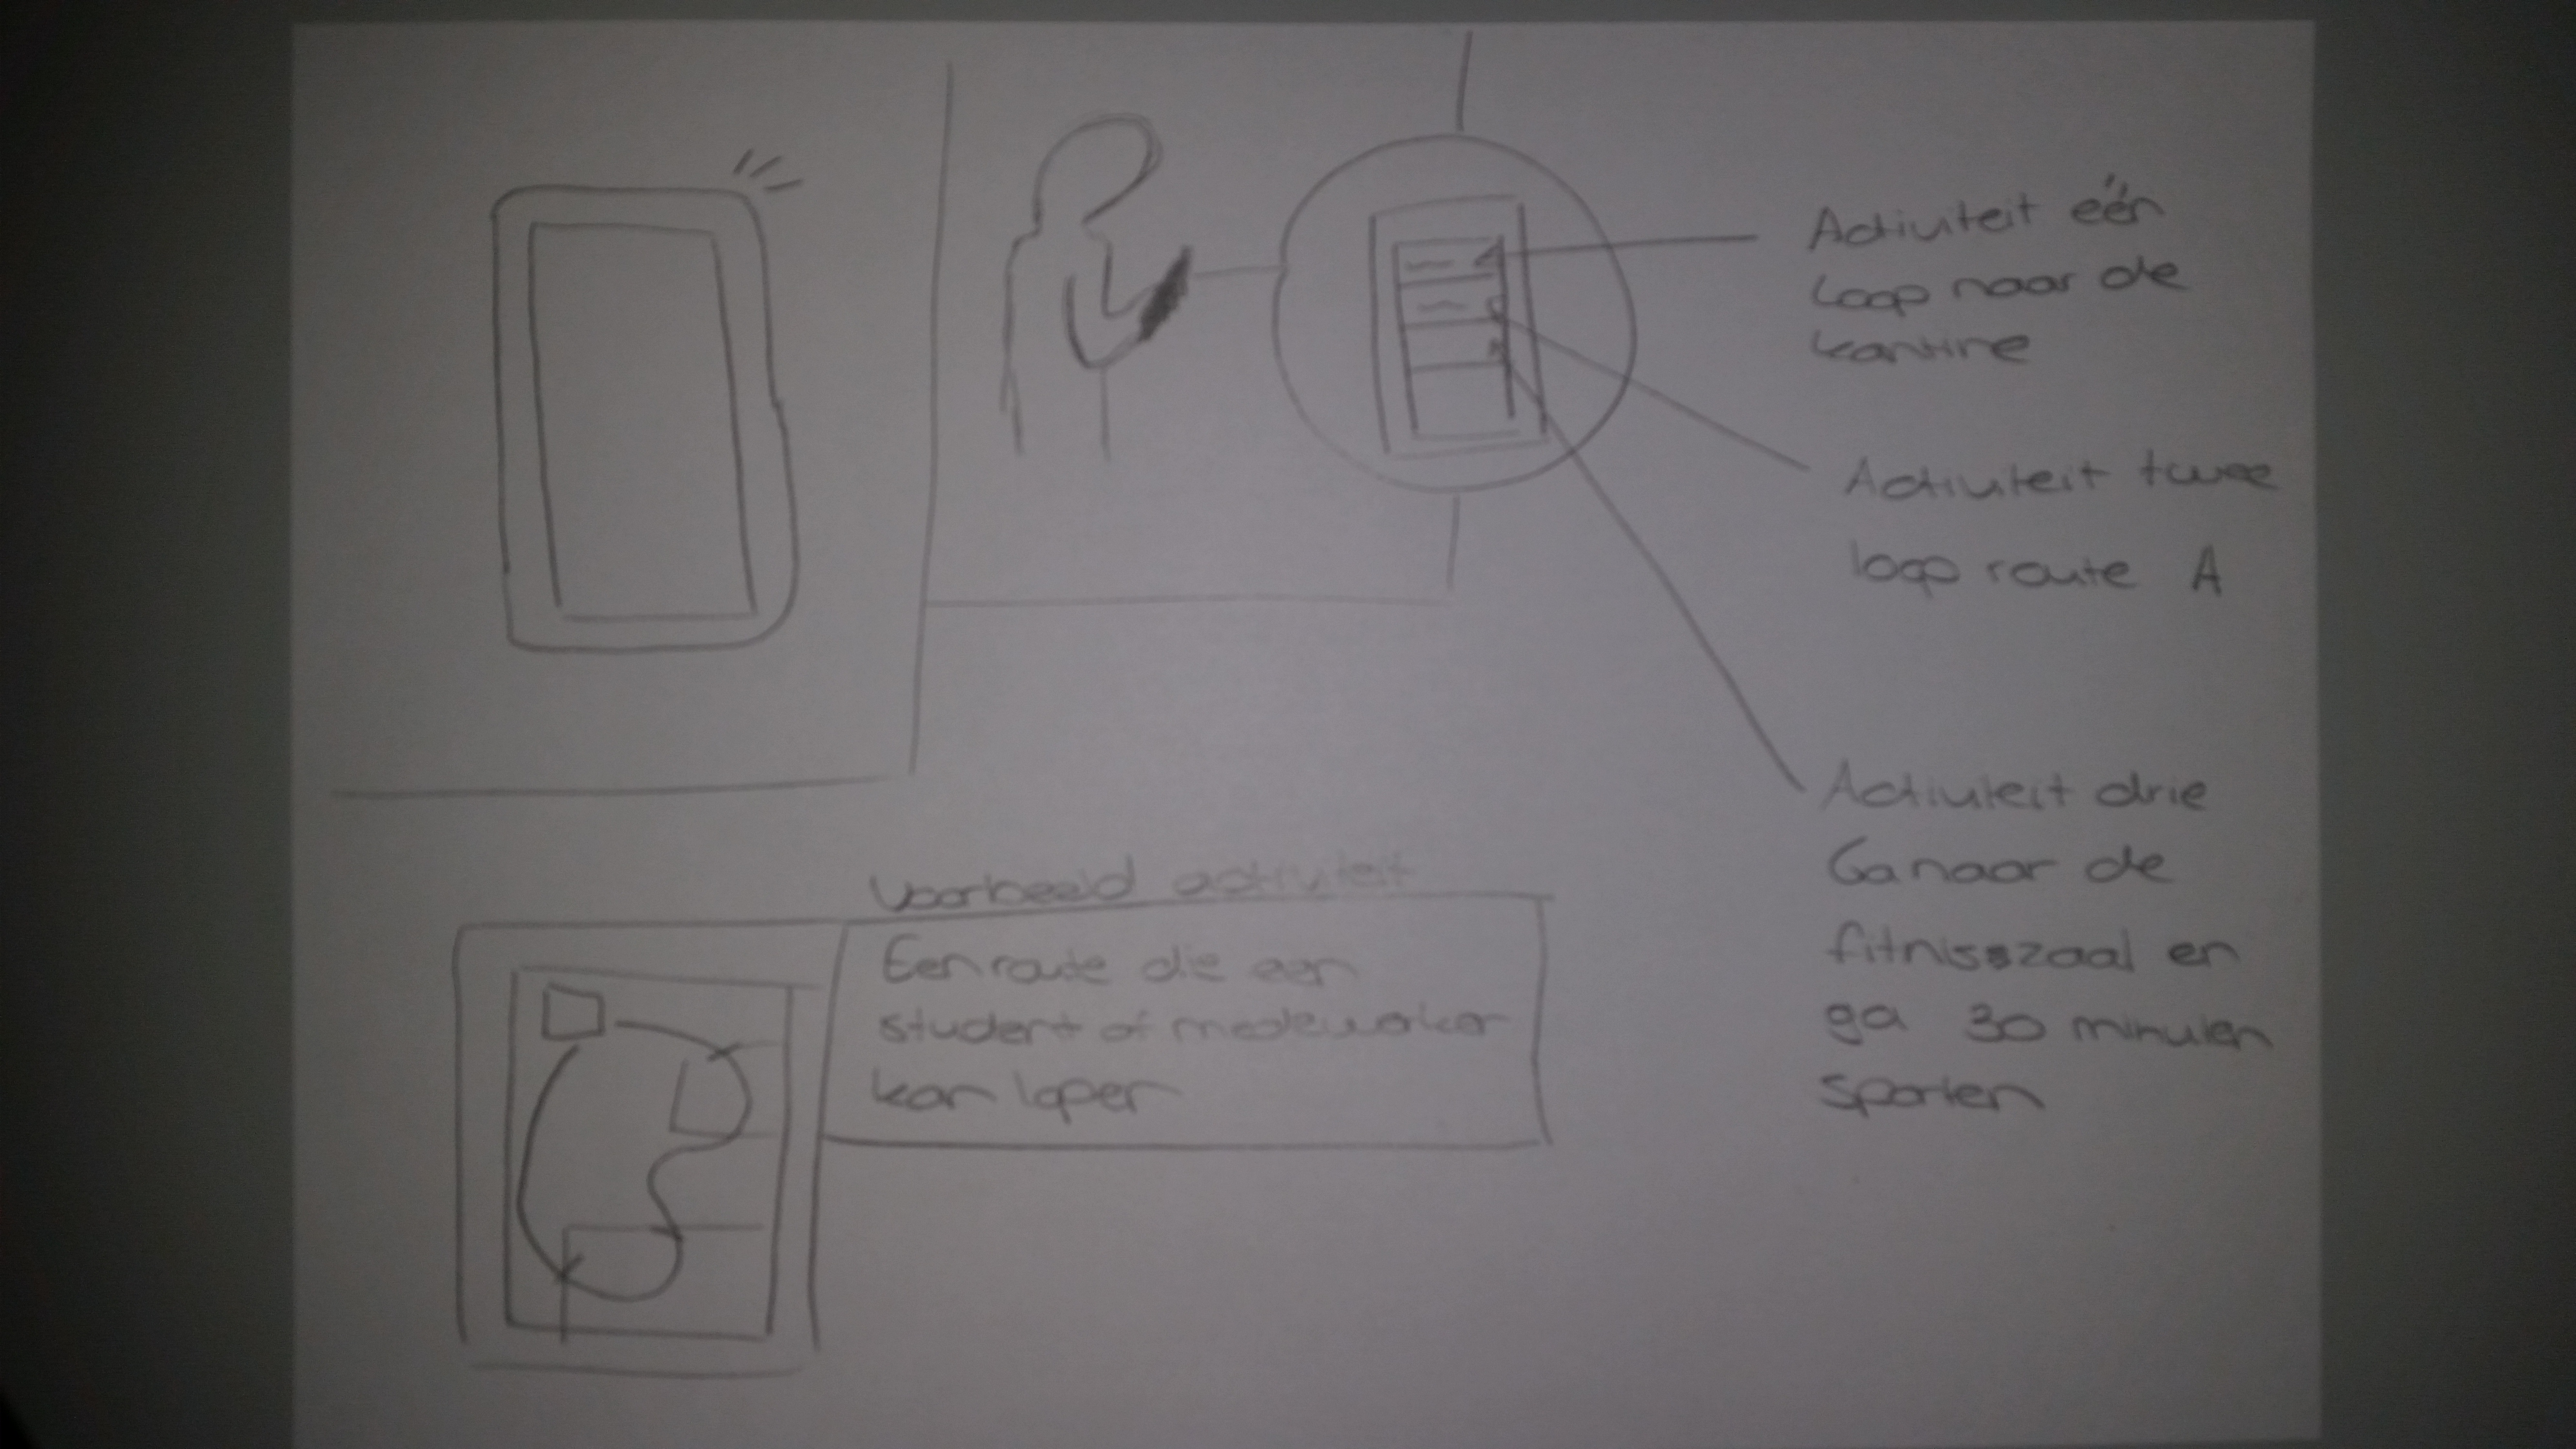 Activiteit één
Loop naar de
kantine
Activiteit twee
loop route A
Activiteit drie
Ga naar de
fitnisszaal en
ga 30 minuten
sporten
Voorbeeld activiteit
Een route die een
student of medewerker
kan lopen